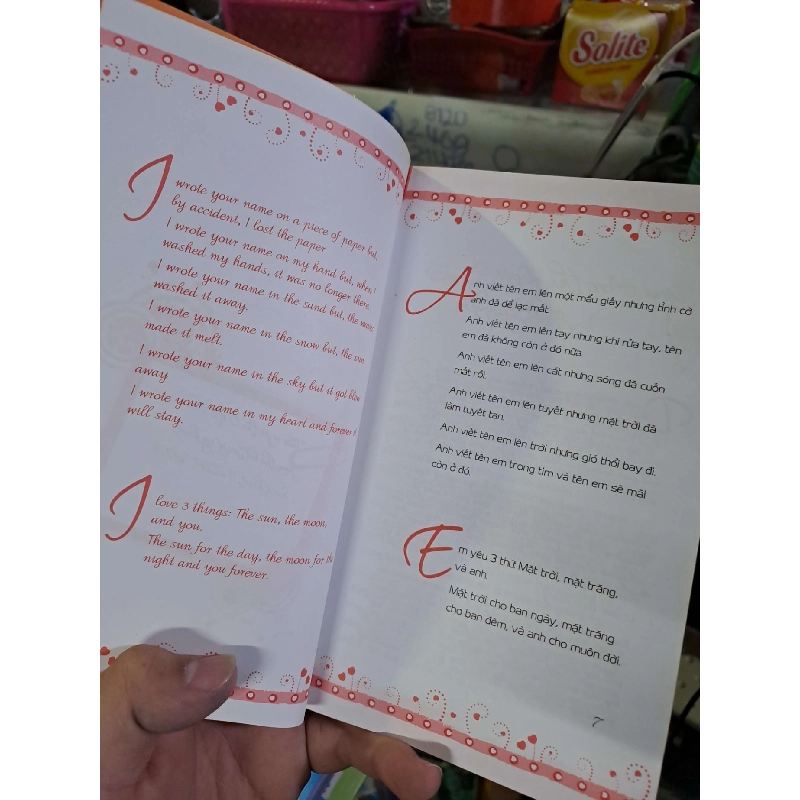 Solite
8120
I wrote your name on a piece of paper but,
by accident, I lost the paper
I wrote your name on my hand but, when I
washed my hands, it was no longer there.
I wrote your name in the sand but, the waves
washed it away.
I wrote your name in the snow but, the sun
made it melt.
I wrote your name in the sky but it got blow
away
I wrote your name in my heart and forever it
will stay.
I love 3 things: The sun, the moon,
and you.
The sun for the day, the moon for the
night and you forever.
Anh viết tên em lên một mẩu giấy nhưng tình cờ
anh đã để lạc mất.
Anh viết tên em lên tay nhưng khi rửa tay, tên
em đã không còn ở đó nữa.
Anh viết tên em lên cát nhưng sóng đã cuốn
mất rồi.
Anh viết tên em lên tuyết nhưng mặt trời đã
làm tuyết tan.
Anh viết tên em lên trời nhưng gió thổi bay đi.
Anh viết tên em trong tim và tên em sẽ mãi
còn ở đó.
Em yêu 3 thứ: Mặt trời, mặt trăng,
và anh.
Mặt trời cho ban ngày, mặt trăng
cho ban đêm, và anh cho muôn đời.
7